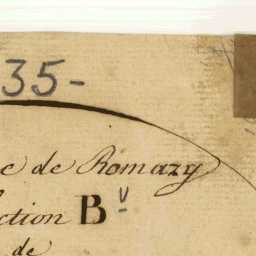 35-
e de Romazy
ction B v
de